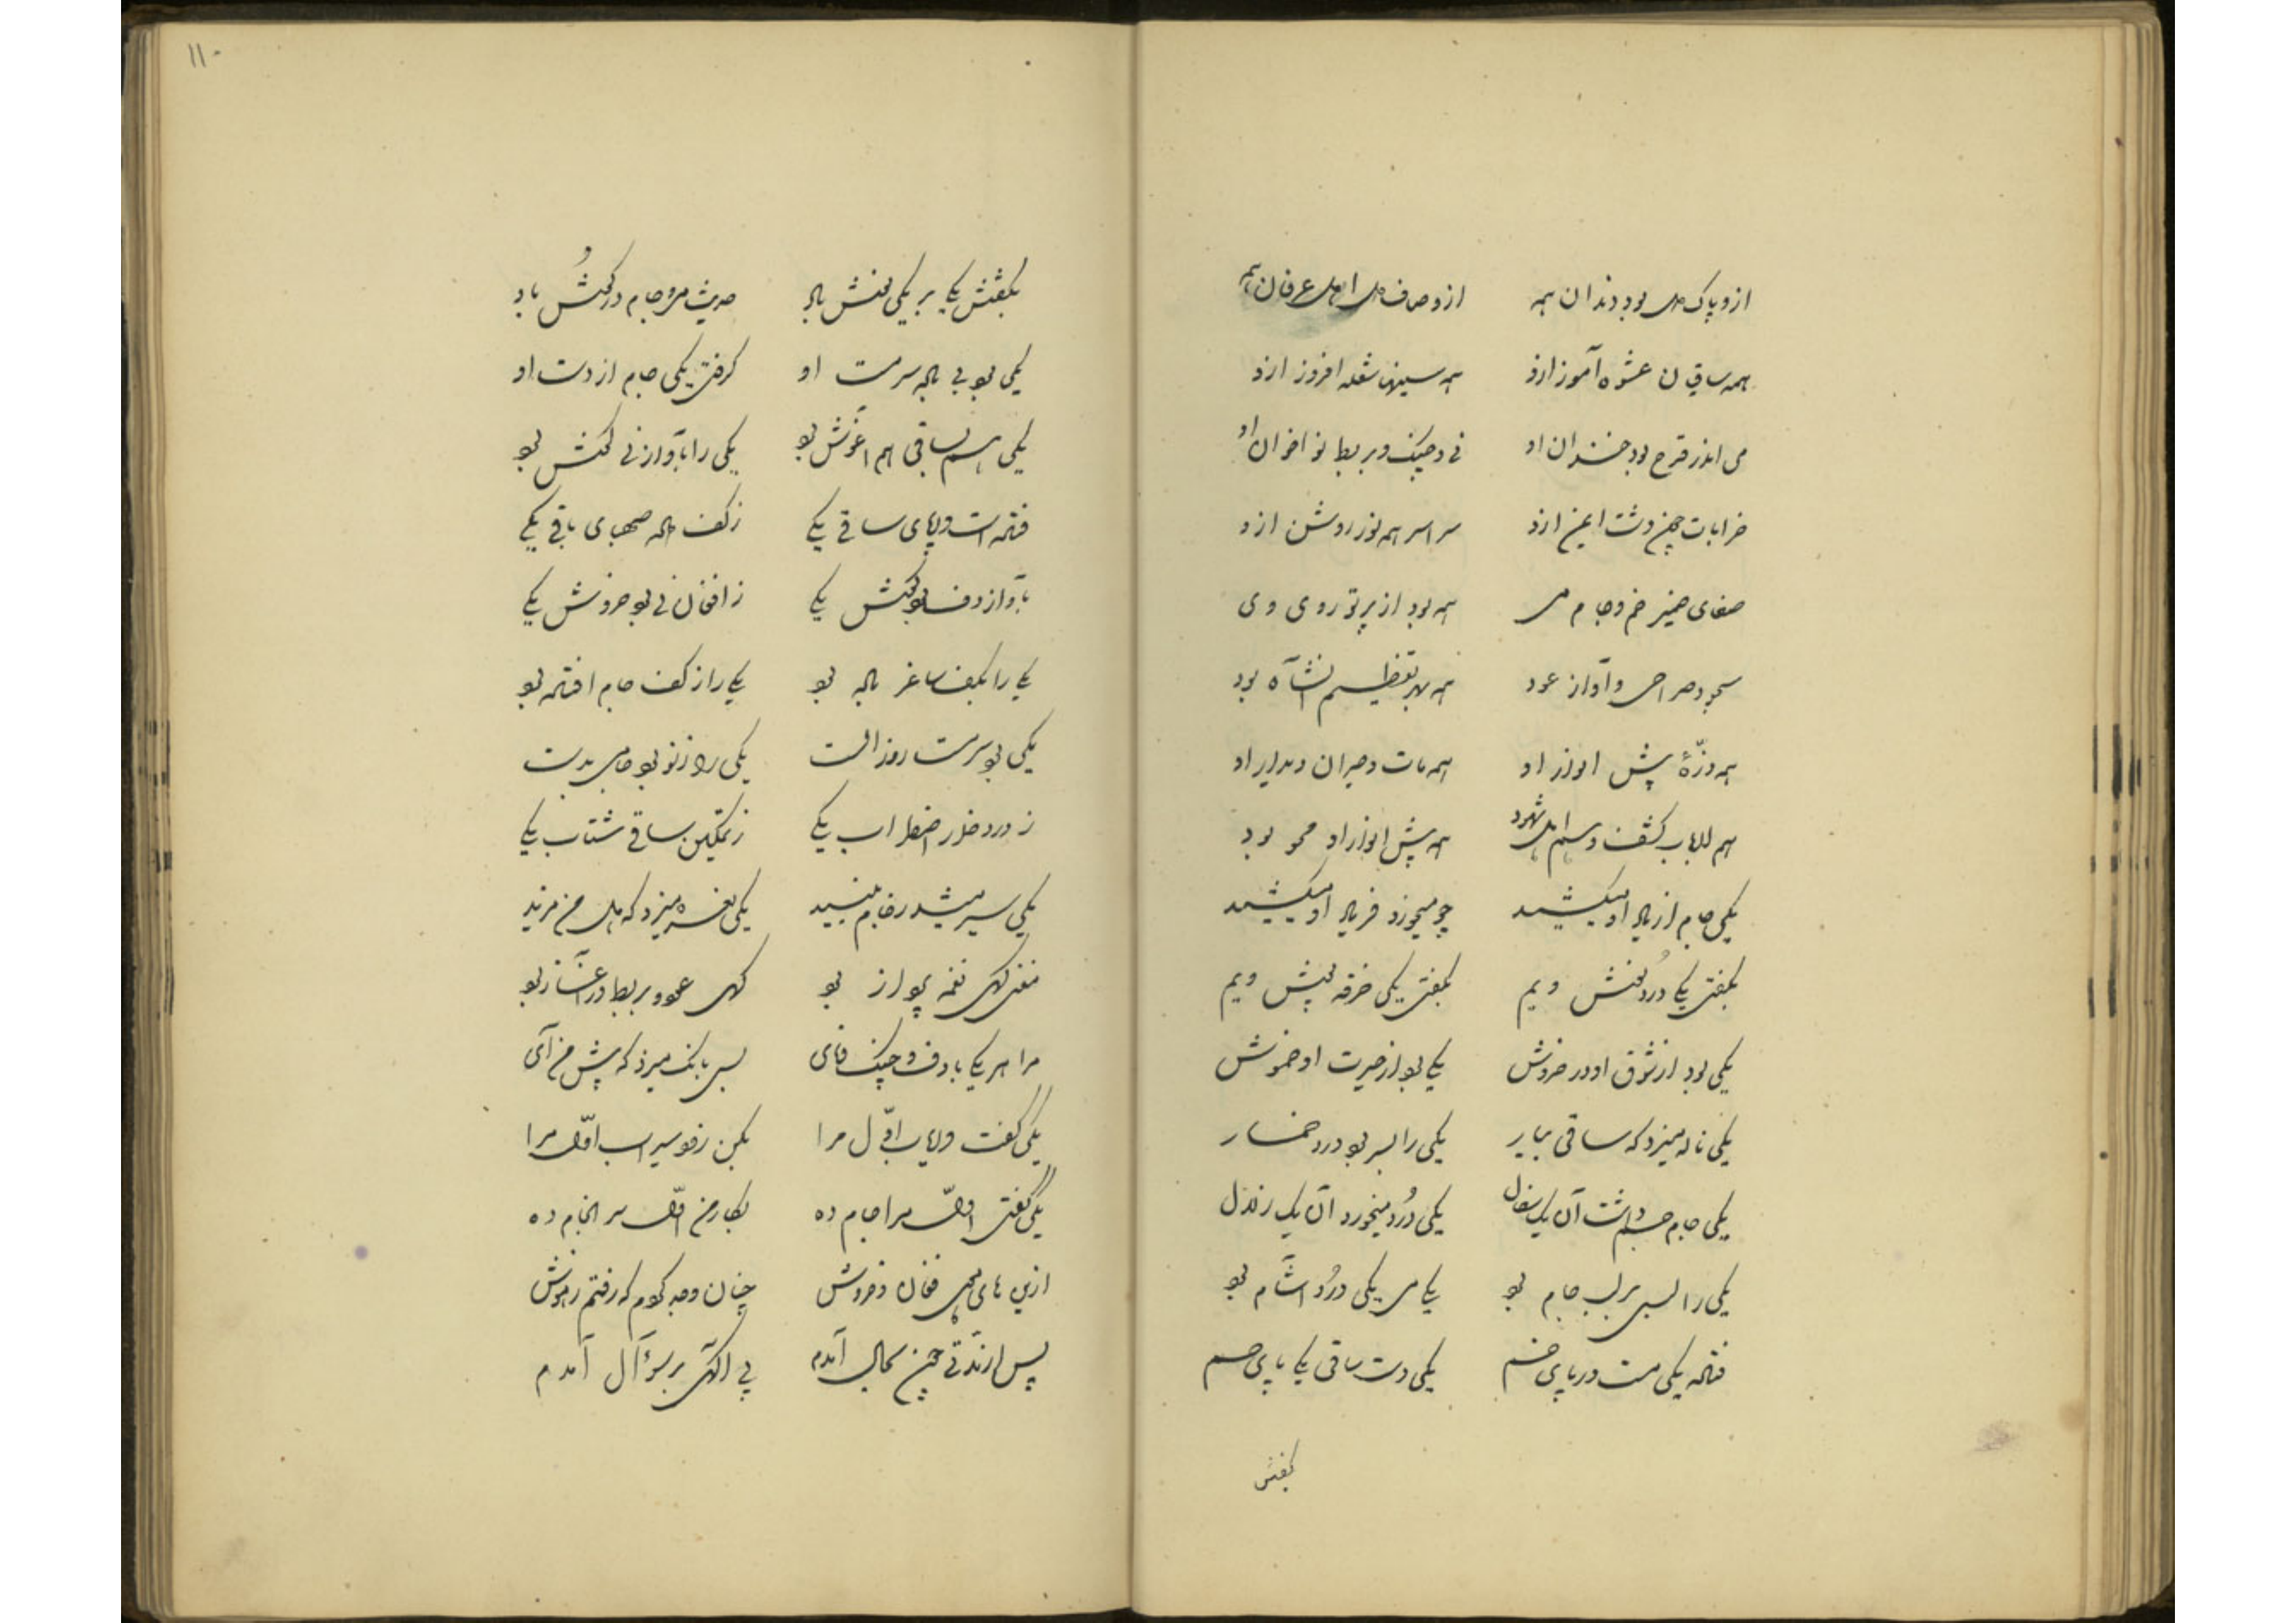 ازو پاک دل بود رندان همه ازو صاف دل اهل عرفان همه
همه ساقیان عشوه آموز ازو همه سینها شعله افروز ازو
می اندر قدح بود خندان او نی و چنک و بربط نواخوان او
خرابات چون دشت ایمن ازو سراسر همه نور روشن ازو
صفای ضمیر خم و جام می همه بود از پرتو روی وی
سجود صراحی و آواز عود همه بهر تعظیم آنشاه بود
همه ذرّهٔ پیش انوار او همه مات و حیران دیدار او
هم ارباب کشف و هم اهل شهود همه پیش انوار او محو بود
یکی جام از یاد او میکشید چو میخورد فریاد او میکشید
بکفتی یکی دردنوش ویم بکفتی یکی خرقه پوش ویم
یکی بود از شوق او در خروش یکی بود از حیرت او خموش
یکی ناله میزد که ساقی بیار یکی را بسر بود درد خمار
یکی جام جم داشت آن یک سفال یکی دُرد میخورد آن یک زلال
یکی را لبی بر لب جام بود یکی می یکی دُرد آشام بود
فتاده یکی مست در پای خم یکی دست ساقی یکی پای خم
بکفتش
۱۱۰
بکفتش یکی بر یکی نوش باد حدیث می و جام در کوش باد
یکی بود بی باده سرمست او کرفتی یکی جام از دست او
یکی هم بساقی هم آغوش بود یکی را بآواز نی کوش بود
فتاده است در پای ساقی یکی ز کف داده صهبای باقی یکی
بآواز دف بود کوش یکی ز افغان نی بود خروش یکی
یکی را بکف ساغر باده بود یکی را ز کف جام افتاده بود
یکی بود سرمست روز الست یکی را ز نو بود جامی بدست
ز درد خمار اضطراب یکی ز تمکین ساقی شتاب یکی
یکی سیر میشد ز جام نبید یکی نعره میزد که هل من مزید
مغنی کهی نغمه پرداز بود کهی عود و بربط در آغاز بود
مرا هر یکی با دف و چنک و نای بسی بانک میزد که پیش من آی
یکی کفت دریاب اوّل مرا بکن زو سیراب اوّل مرا
یکی کفتی اوّل مرا جام ده بکار من اوّل سرانجام ده
ازین های و هوی و فغان و خروش چنان وجد کردم که رفتم ز هوش
پس از مدّتی چون بحال آمدم پی آکهی بر سؤال آمدم